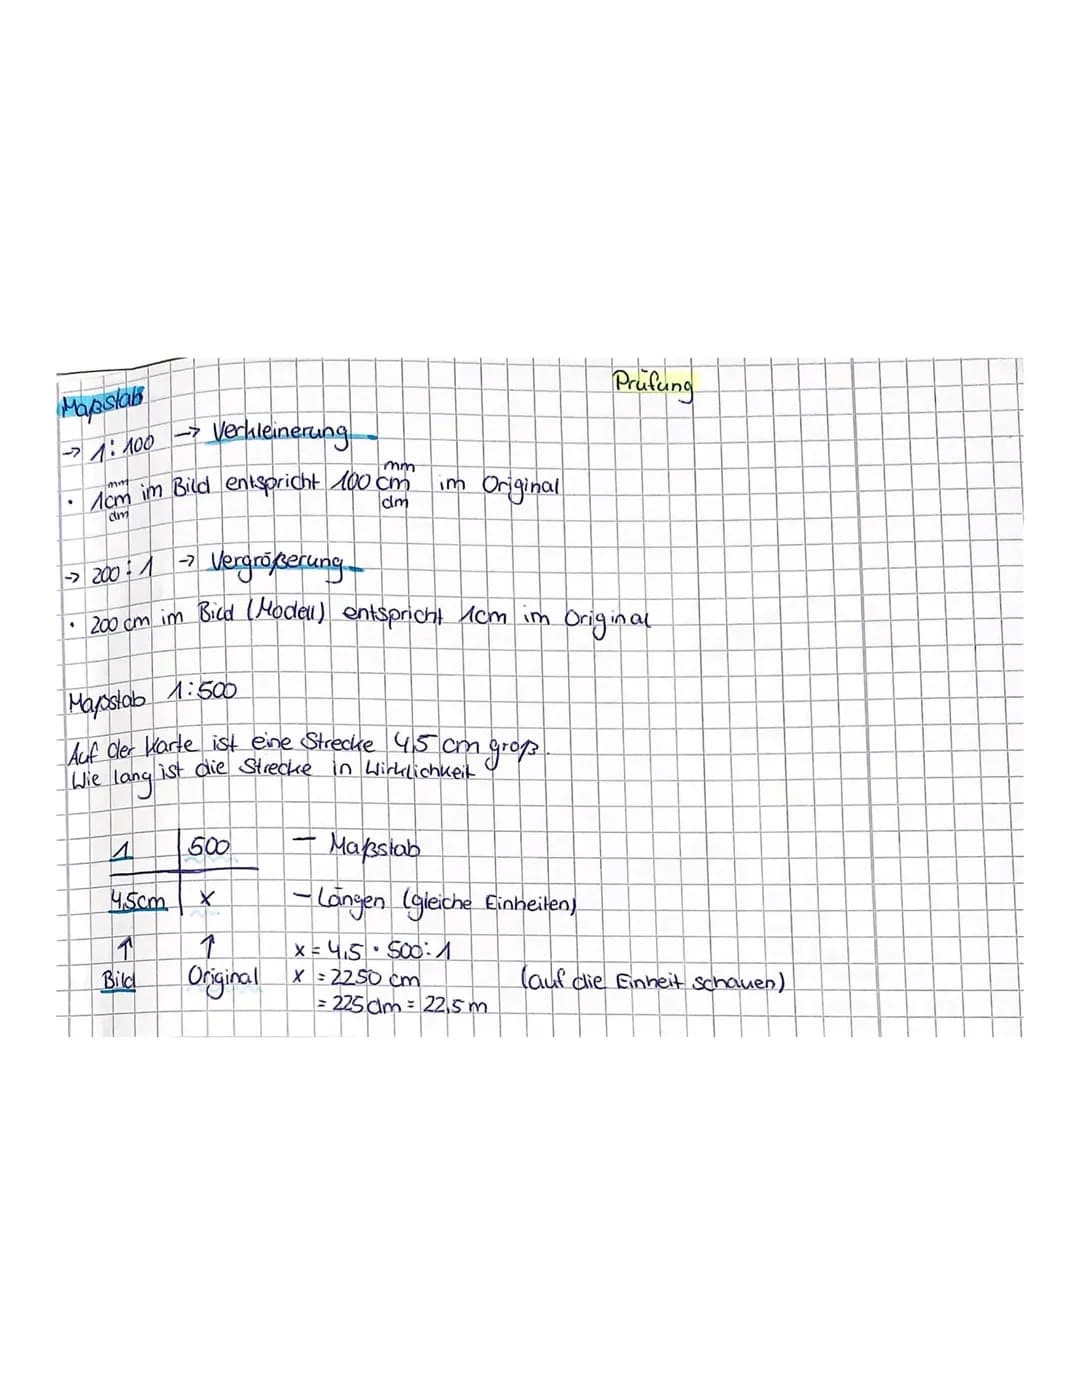 Prüfung
Maßstab
→ 1:100 → Verkleinerung
mm mm
• 1cm im Bild entspricht 100 cm im Original
dm dm
→ 200:1 → Vergrößerung
• 200 cm im Bild (Modell) entspricht 1cm im Original
Maßstab 1:500
Auf der Karte ist eine Strecke 4,5 cm groß.
Wie lang ist die Strecke in Wirklichkeit
1 500 – Maßstab
4,5cm x – Längen (gleiche Einheiten)
↑ ↑ x = 4,5 · 500:1
Bild Original x = 2250 cm (auf die Einheit schauen)
= 225 dm = 22,5 m